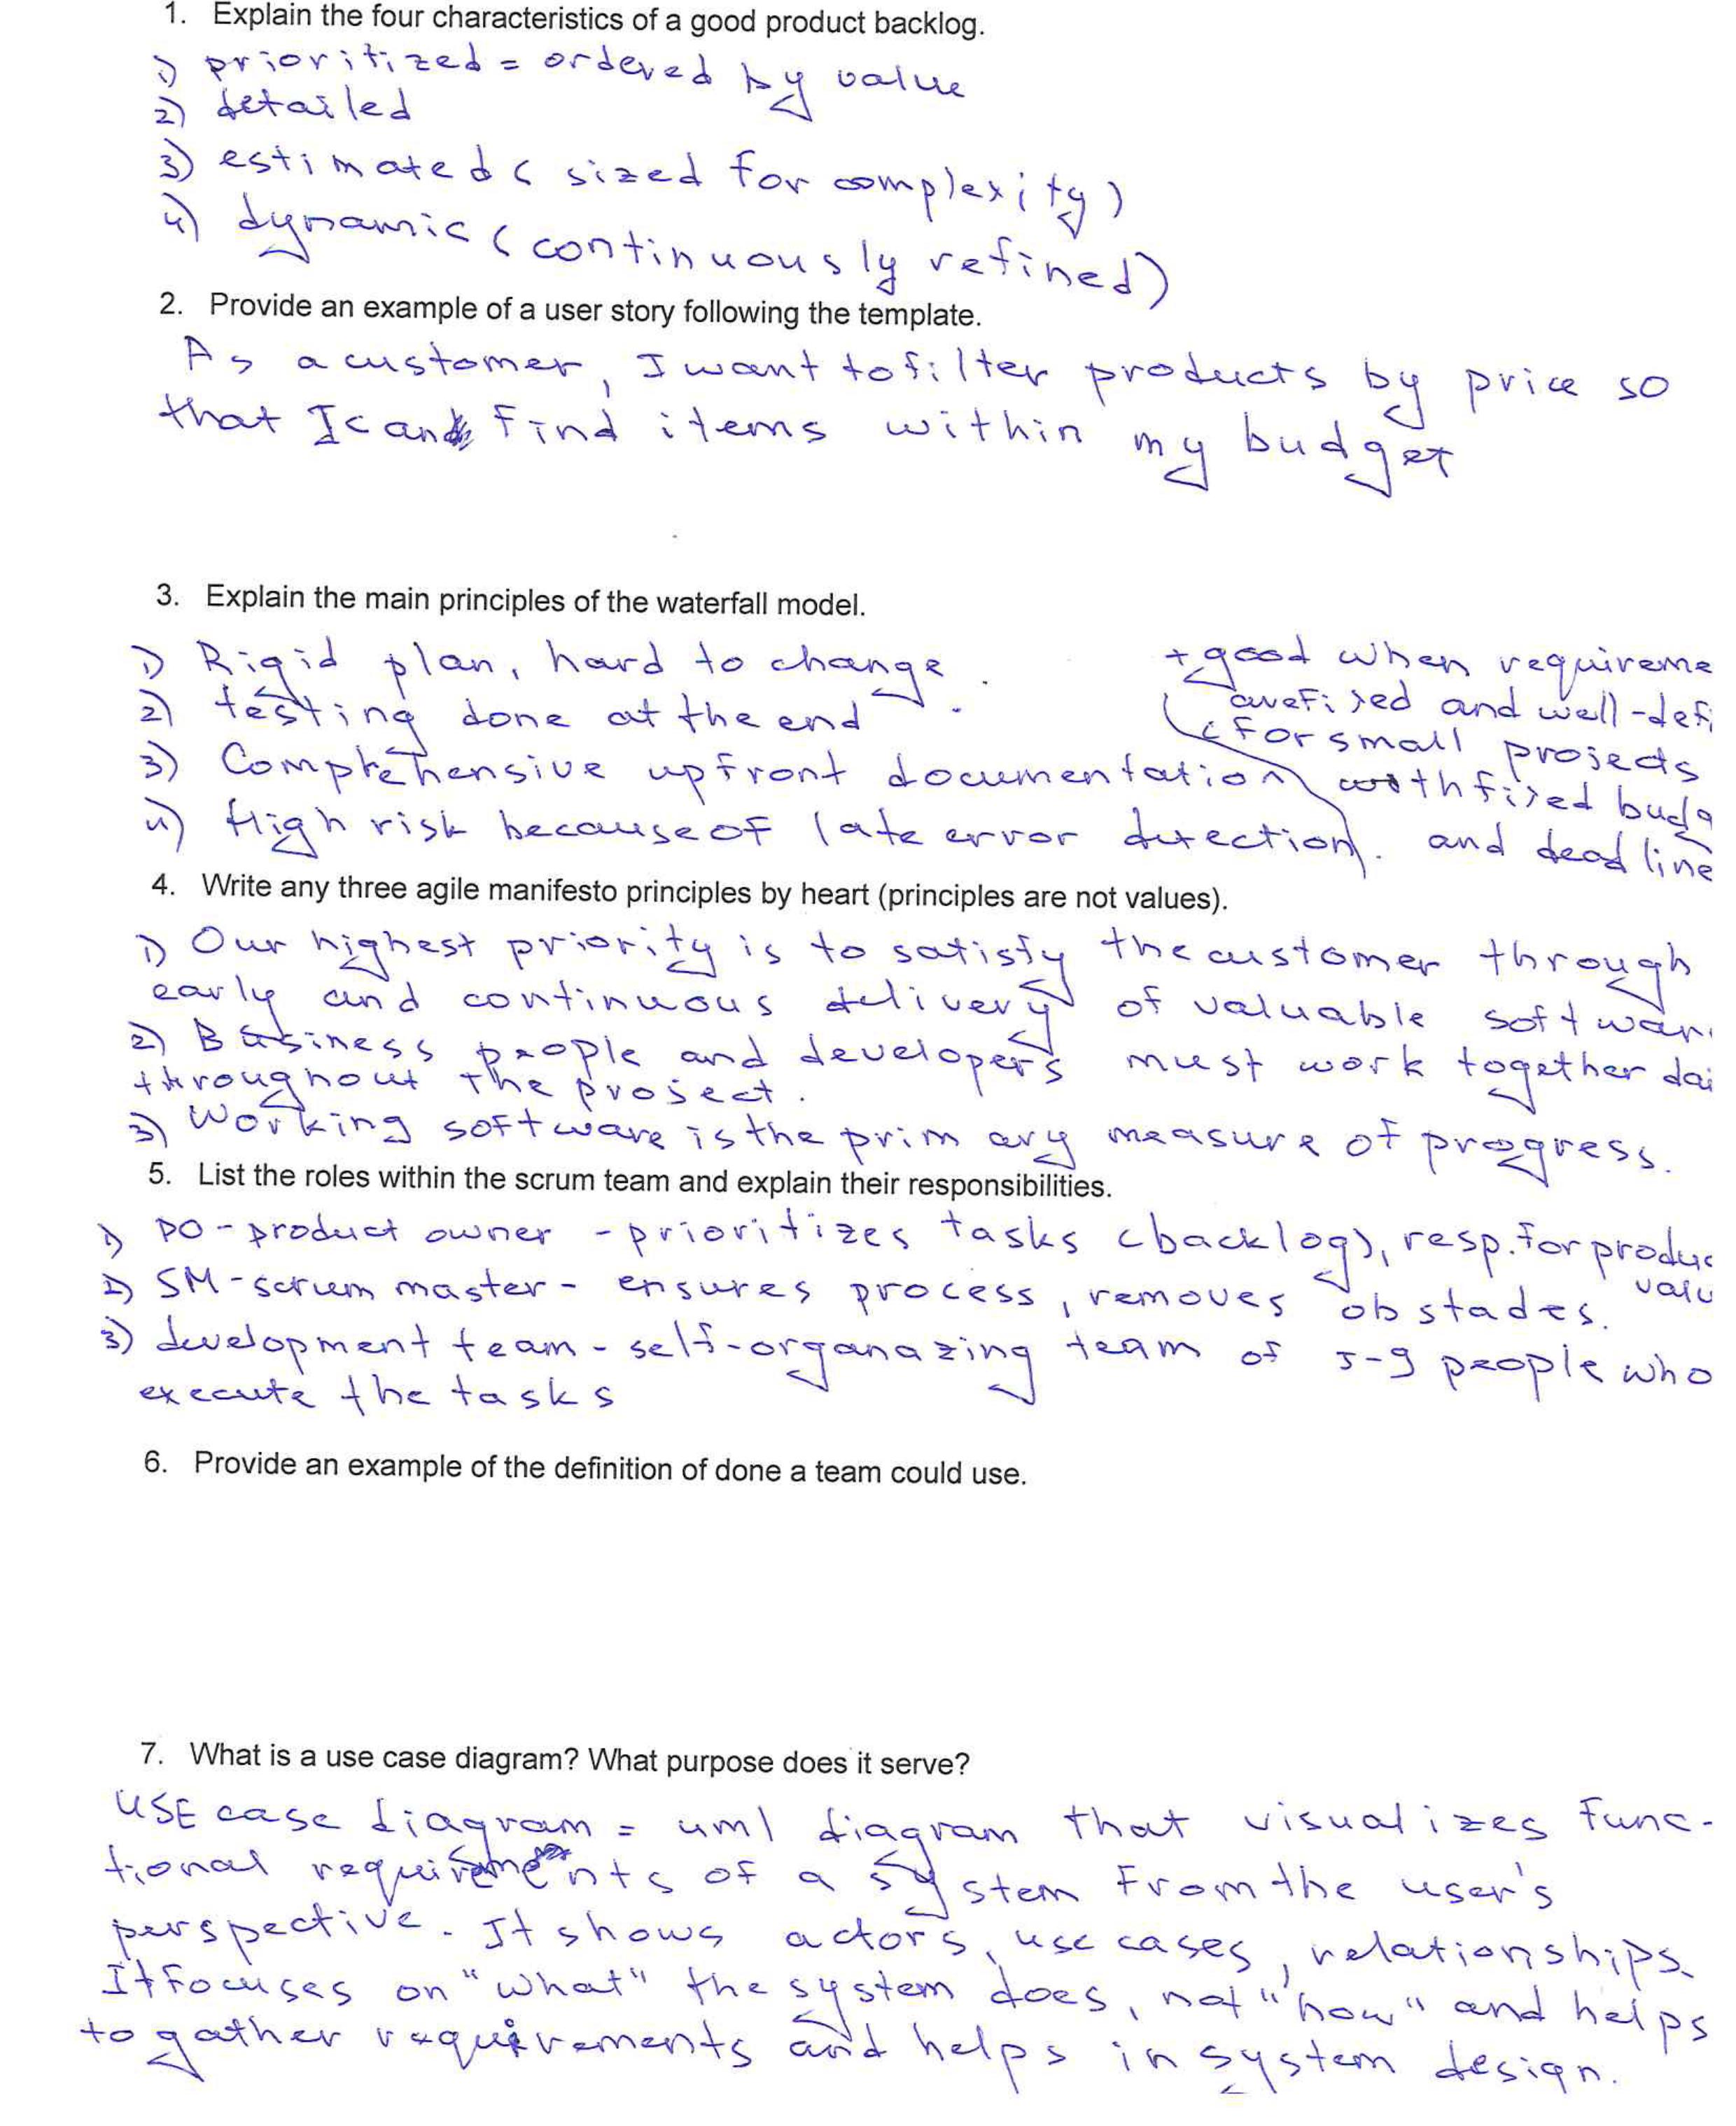 1. Explain the four characteristics of a good product backlog.
1) prioritized = ordered by value
2) detailed
3) estimated ( sized for complexity)
4) dynamic ( continuously refined)
2. Provide an example of a user story following the template.
As a customer, I want to filter products by price so
that I can find items within my budget
3. Explain the main principles of the waterfall model.
1) Rigid plan, hard to change.
2) testing done at the end.
3) Comprehensive upfront documentation
4) High risk because of late error detection.
+ good when requireme
are fixed and well-defi
( for small projects
with fixed budg
and deadline
4. Write any three agile manifesto principles by heart (principles are not values).
1) Our highest priority is to satisfy the customer through
early and continuous delivery of valuable softwar
2) Business people and developers must work together dai
throughout the project.
3) Working software is the primary measure of progress.
5. List the roles within the scrum team and explain their responsibilities.
1) PO - product owner - prioritizes tasks (backlog), resp. for produc
valu
2) SM - scrum master - ensures process, removes obstacles.
3) development team - self-organazing team of 5-9 people who
execute the tasks
6. Provide an example of the definition of done a team could use.
7. What is a use case diagram? What purpose does it serve?
USE case diagram = uml diagram that visualizes func-
tional requirements of a system from the user's
perspective. It shows actors, use cases, relationships.
It focuses on "what" the system does, not "how" and helps
to gather requirements and helps in system design.